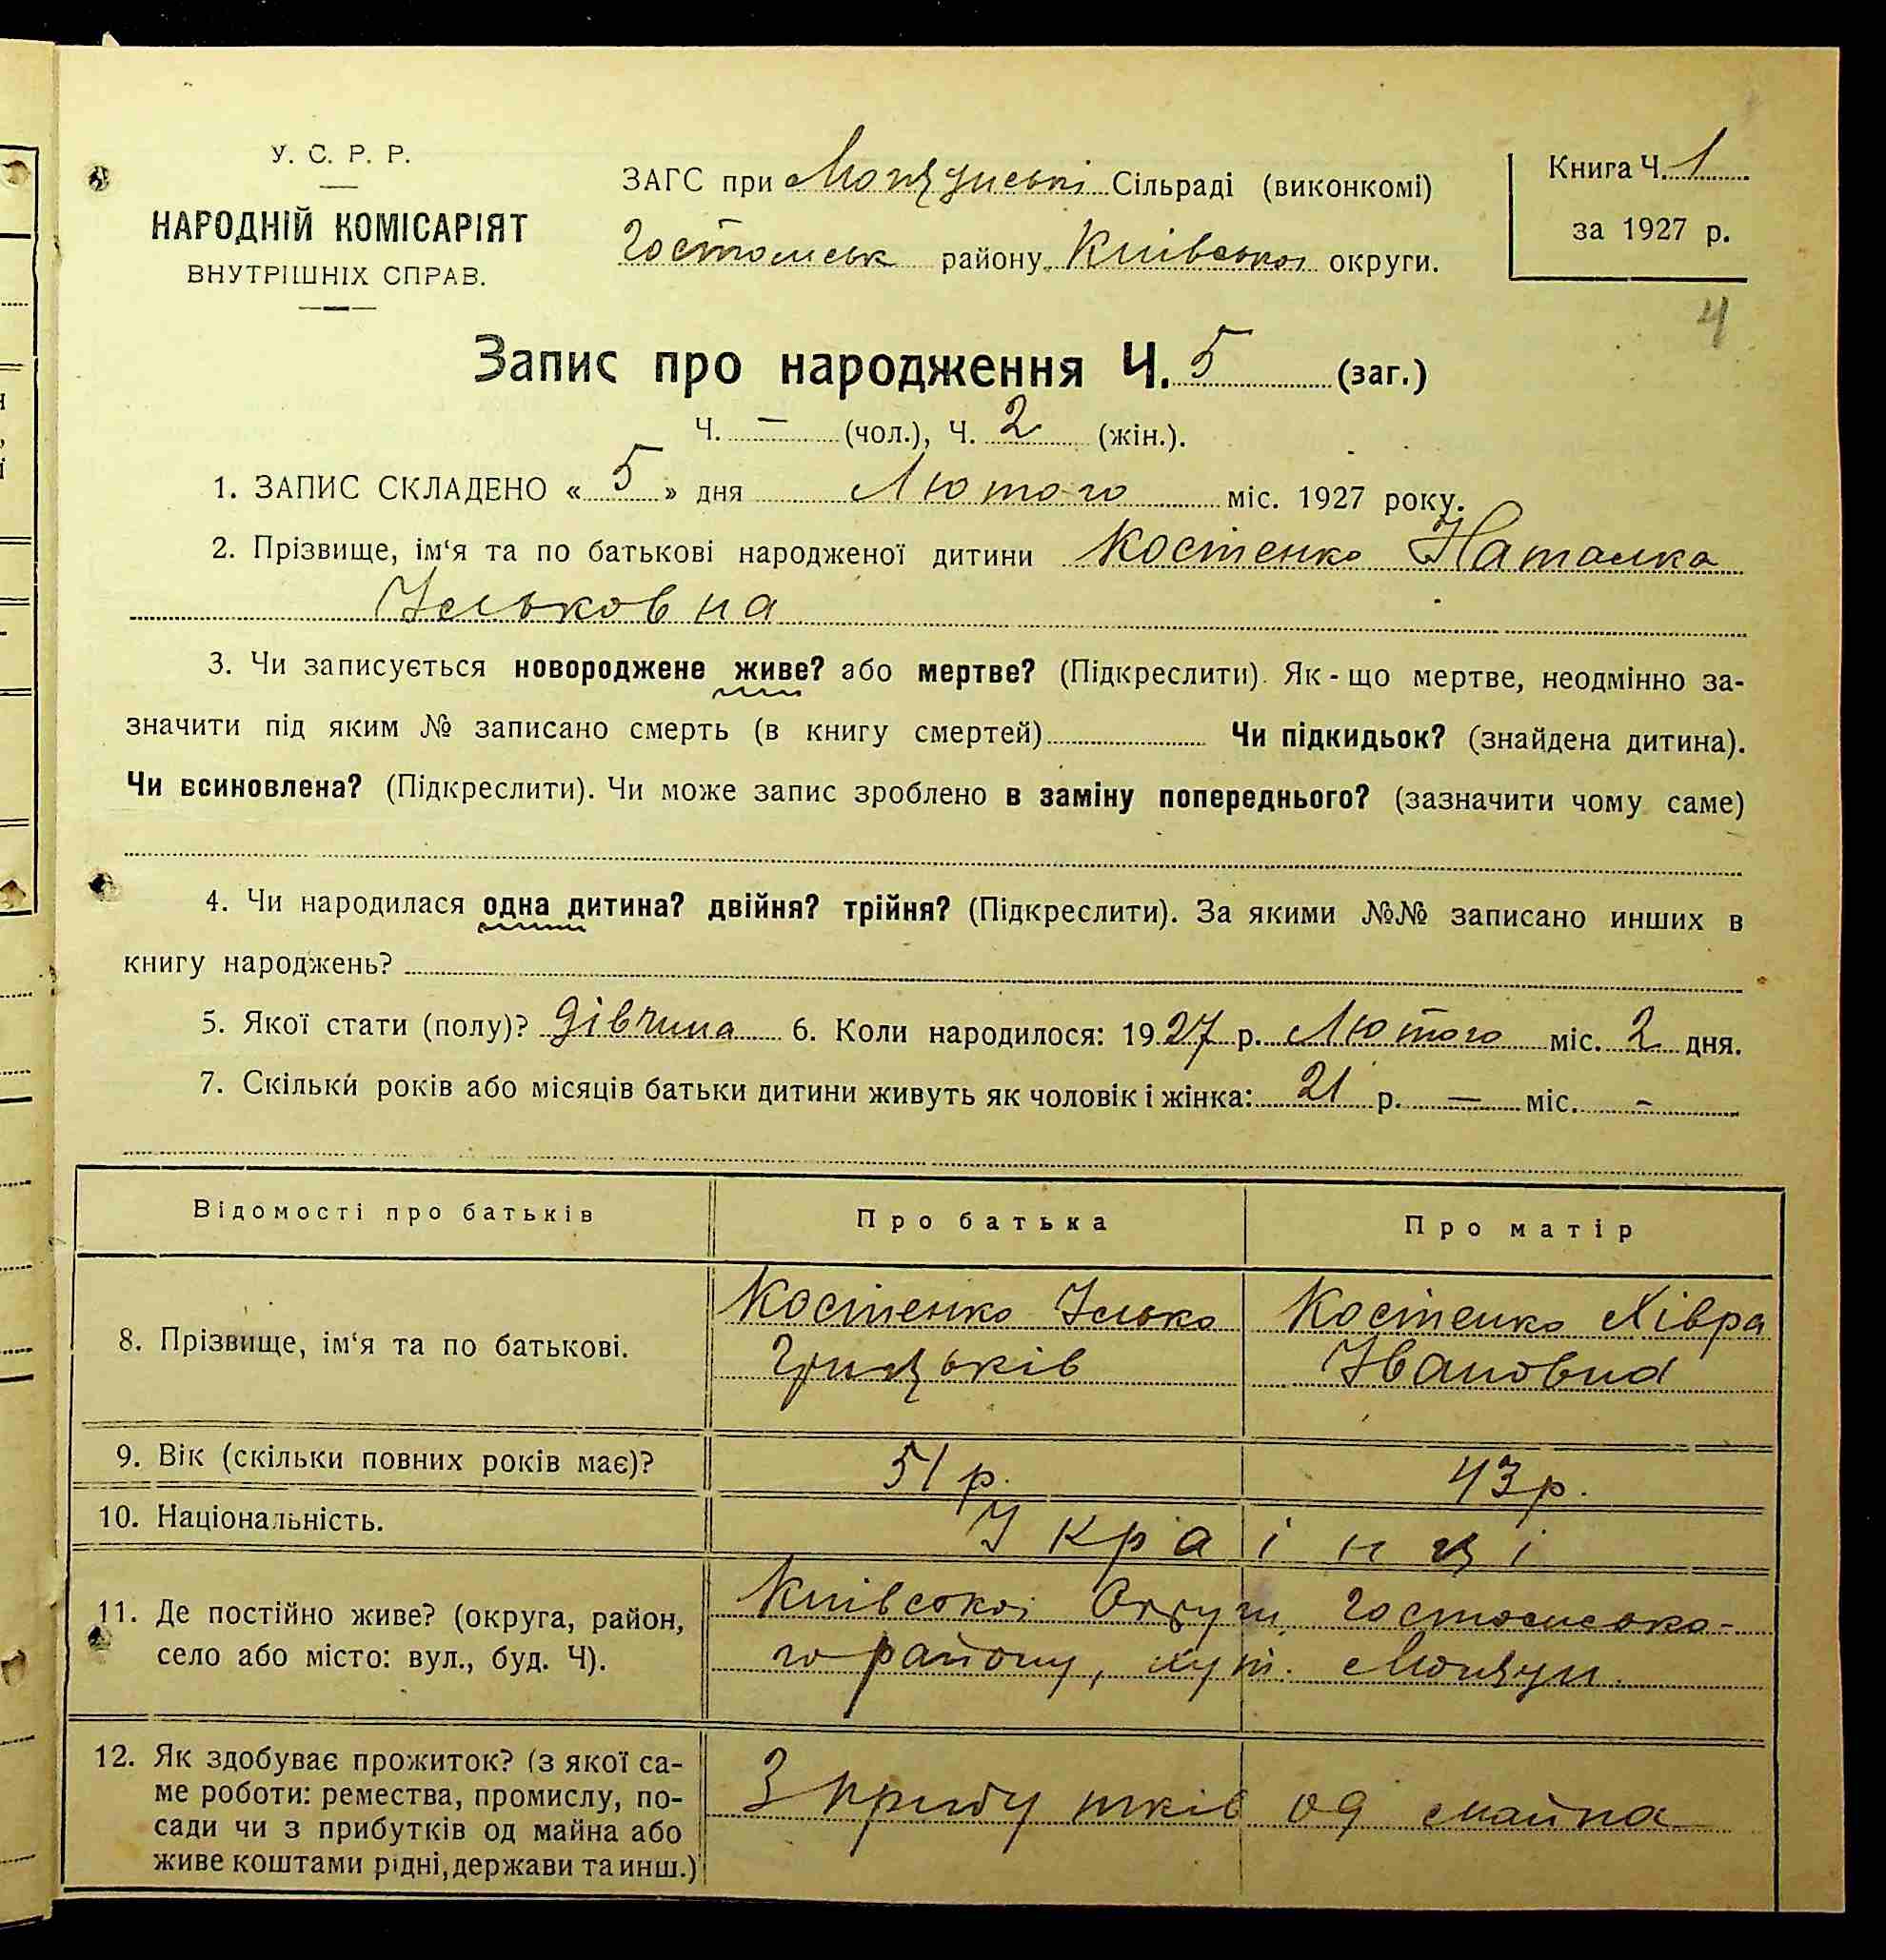 У. С. Р. Р.
НАРОДНІЙ КОМІСАРІЯТ
ВНУТРІШНІХ СПРАВ.
ЗАГС при Мощунські Сільраді (виконкомі)
Гостомськ району, Київської округи.
Книга Ч. 1
за 1927 р.
4
Запис про народження Ч. 5 (заг.)
Ч. — (чол.), Ч. 2 (жін.).
1. ЗАПИС СКЛАДЕНО « 5 » дня Лютого міс. 1927 року.
2. Прізвище, ім‘я та по батькові народженої дитини Костенко Наталка
Ільковна
3. Чи записується новороджене живе? або мертве? (Підкреслити). Як-що мертве, неодмінно за-
значити під яким № записано смерть (в книгу смертей) Чи підкидьок? (знайдена дитина).
Чи всиновлена? (Підкреслити). Чи може запис зроблено в заміну попереднього? (зазначити чому саме)
4. Чи народилася одна дитина? двійня? трійня? (Підкреслити). За якими №№ записано инших в
книгу народжень?
5. Якої стати (полу)? дівчина 6. Коли народилося: 1927 р. Лютого міс. 2 дня.
7. Скільки років або місяців батьки дитини живуть як чоловік і жінка: 21 р. — міс. -
Відомості про батьків Про батька Про матір
8. Прізвище, ім‘я та по батькові.
Костенко Ілько
Грицьків
Костенко Хівра
Івановна
9. Вік (скільки повних років має)? 51 р. 43 р.
10. Національність. Українці
11. Де постійно живе? (округа, район,
село або місто: вул., буд. Ч).
Київської Округи, Гостомсько-
го району, хут. Мощун.
12. Як здобуває прожиток? (з якої са-
ме роботи: ремества, промислу, по-
сади чи з прибутків од майна або
живе коштами рідні, держави та инш.)
З прибутків од майна